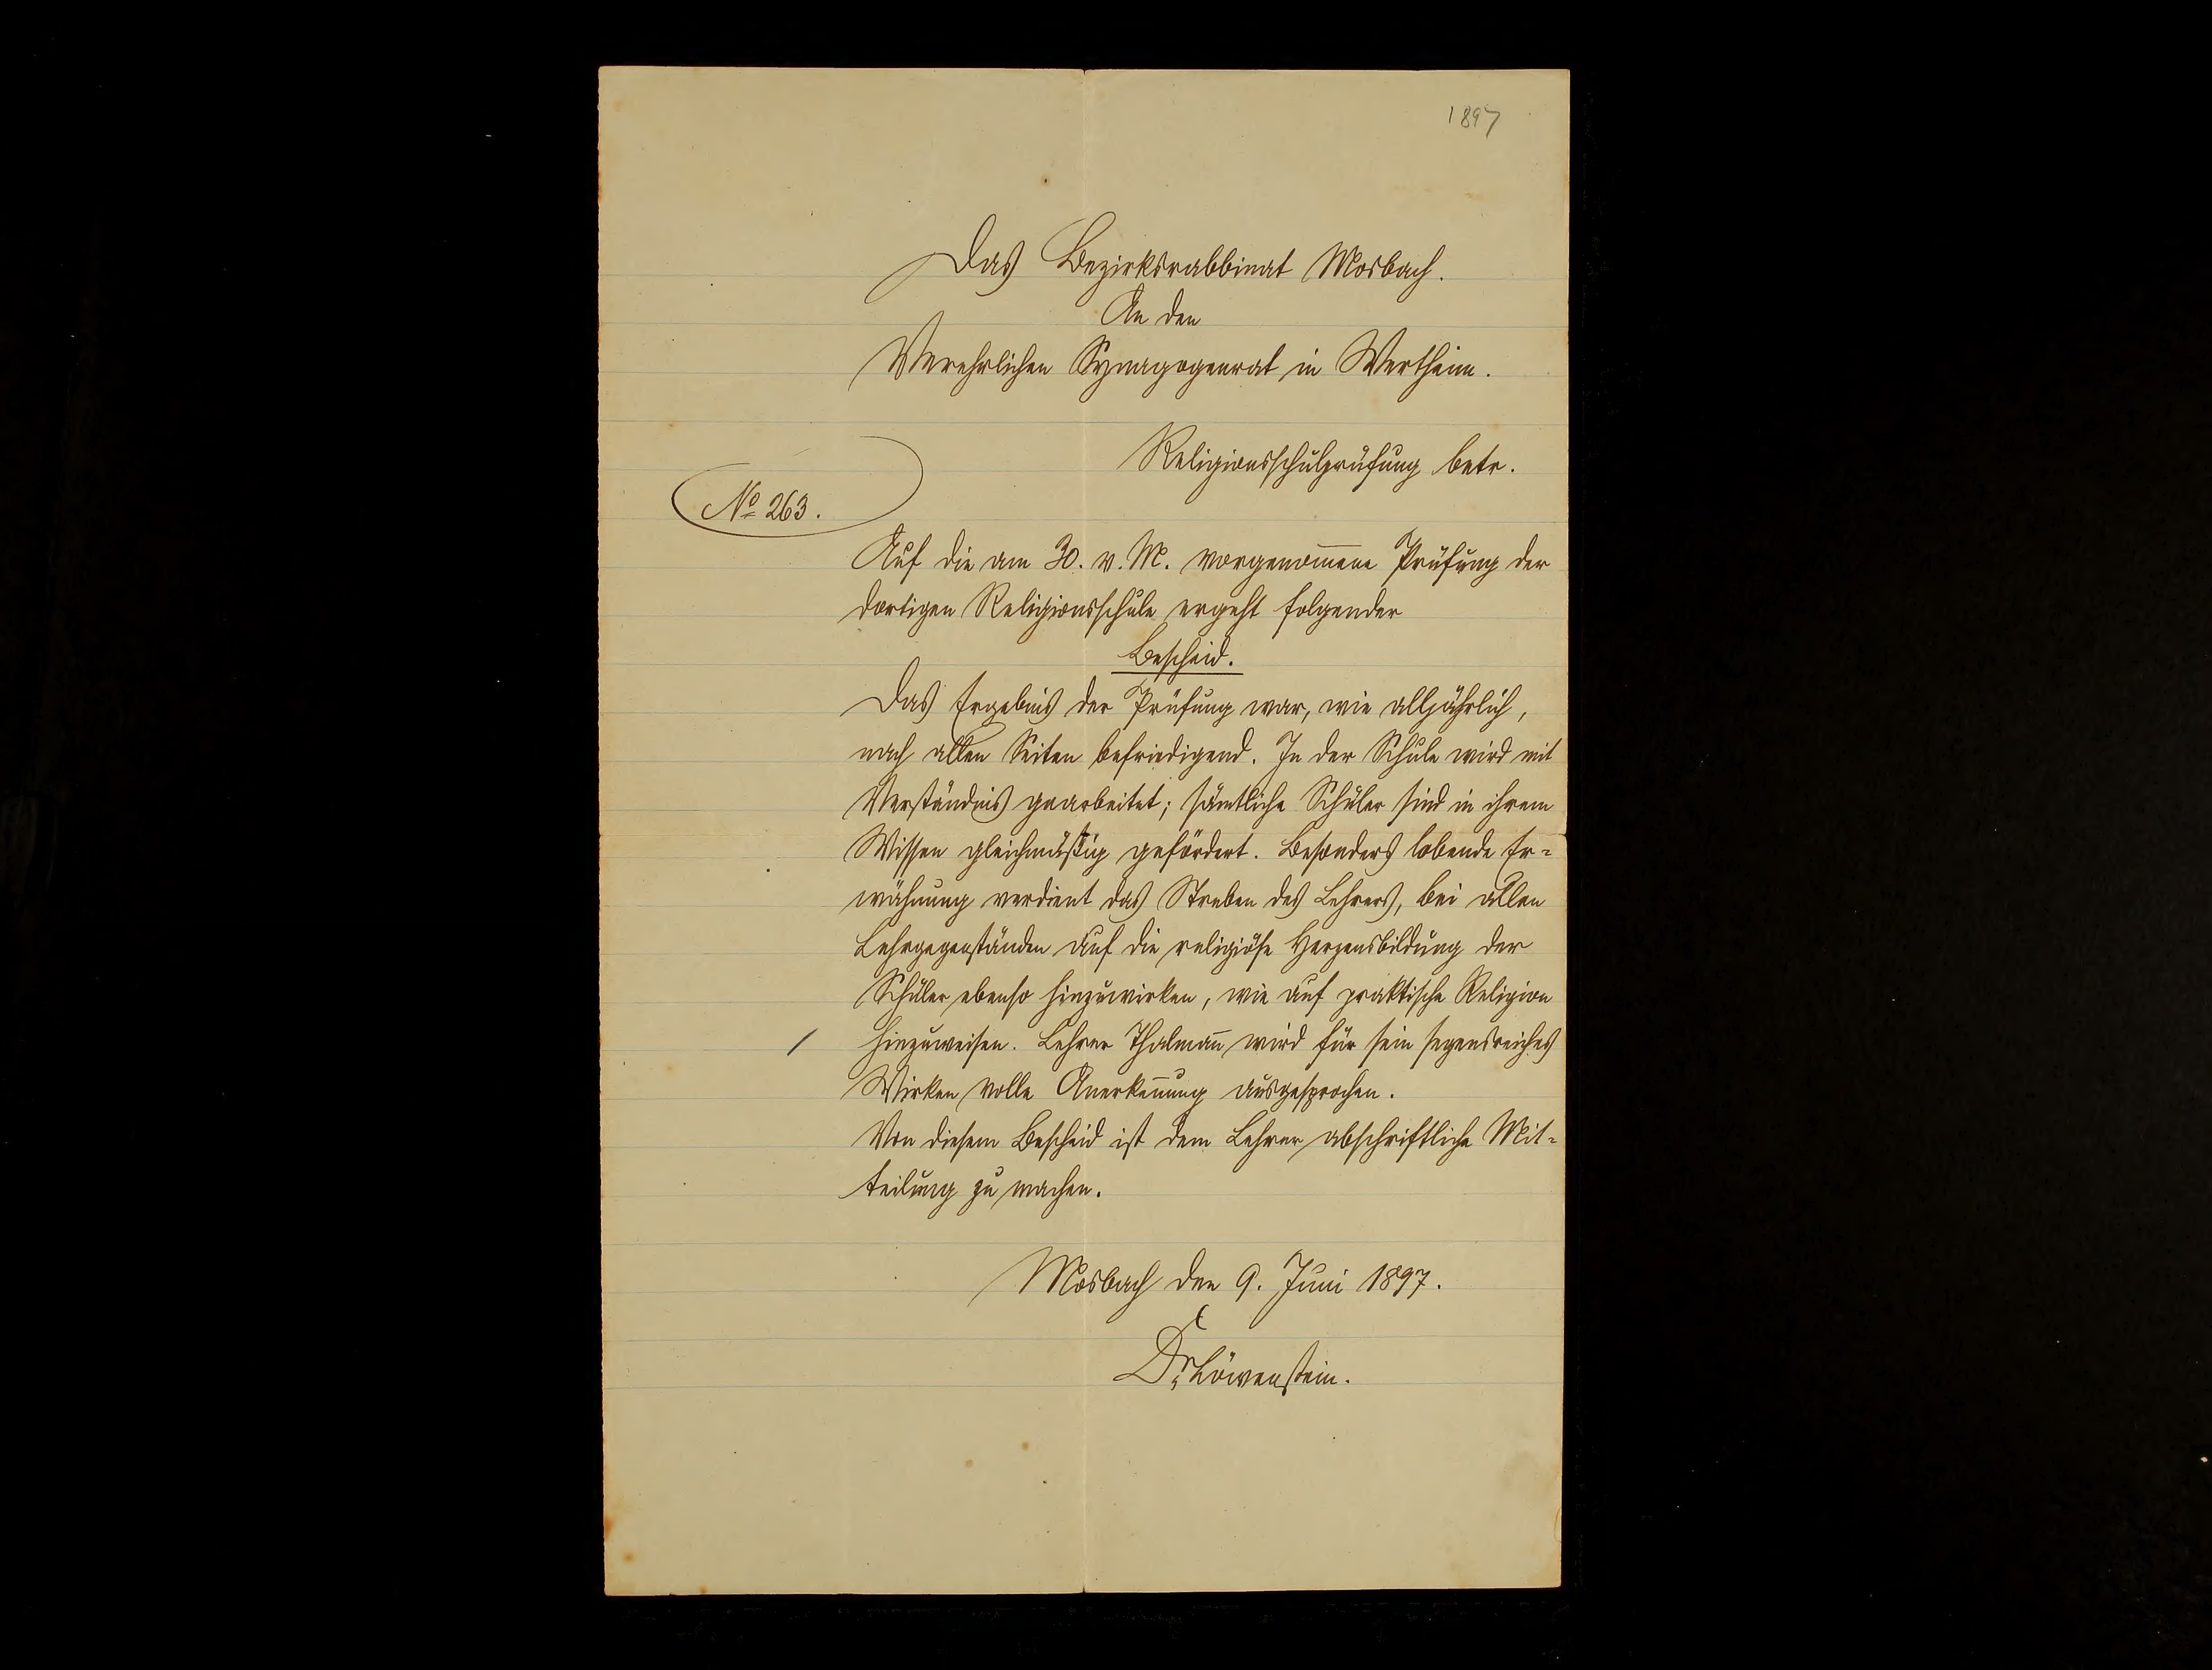 1897
Das Bezirksrabbinat Mosbach.
An den
Verehrlichen Synagogenrat in Wertheim.
Religionsschulprüfung betr.
No 263.
Auf die am 30. v. M. vorgenom̄ene Prüfung der
dortigen Religionsschule ergeht folgender
Bescheid.
Das Ergebnis der Prüfung war, wie alljährlich,
nach allen Seiten befriedigend. In der Schule wird mit
Verständnis gearbeitet; sämtliche Schüler sind in ihrem
Wissen gleichmäßig gefördert. Besonders lobende Er=
wähnung verdient das Streben des Lehrers, bei allen
Lehrgegenständen auf die religiöse Herzensbildung der
Schüler ebenso hinzuwirken, wie auf praktische Religion
hinzuweisen. Lehrer Thalman̄ wird für sein segensreiches
Wirken volle Anerken̄ung ausgesprochen.
Von diesem Bescheid ist dem Lehrer abschriftliche Mit=
teilung zu machen.
Mosbach den 9. Juni 1897.
Dr Löwenstein.